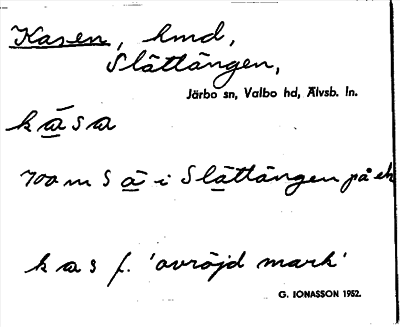 Kasen, hmd,
Slättängen,
Järbo sn, Valbo hd, Älvsb. ln.
kása
700 m S ā i Slättängen på ek
kas f. 'avröjd mark'
G. JONASSON 1952.